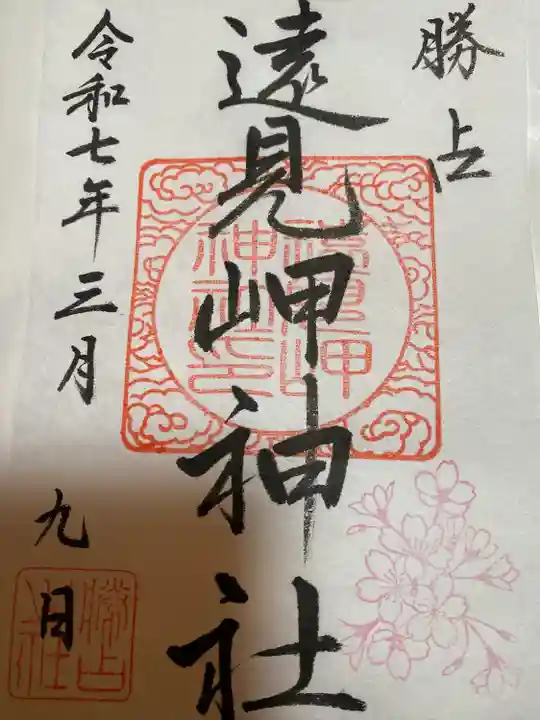 勝占
遠見岬神社
令和七年三月
九日
遠見岬
神社印
勝占
社